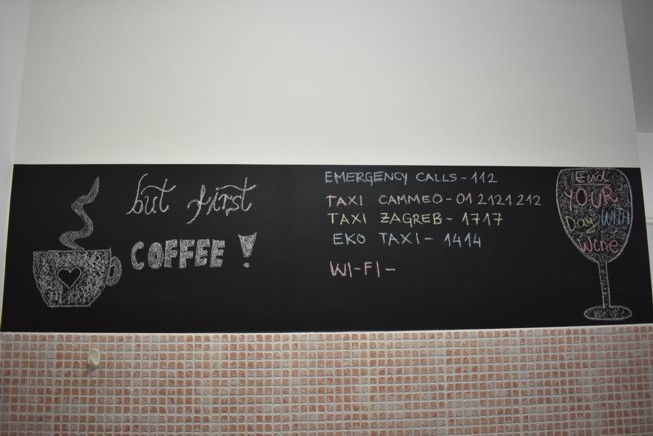 but first
COFFEE!
EMERGENCY CALLS - 112
TAXI CAMMEO - 01 2121 212
TAXI ZAGREB - 1717
EKO TAXI - 1414
WI-FI -
End
YOUR
Day WITH
Wine